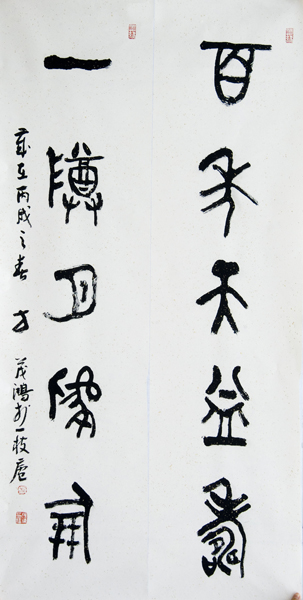 百年天益壽
一尊月
歲在丙戌之春 方茂鴻於一枝廬